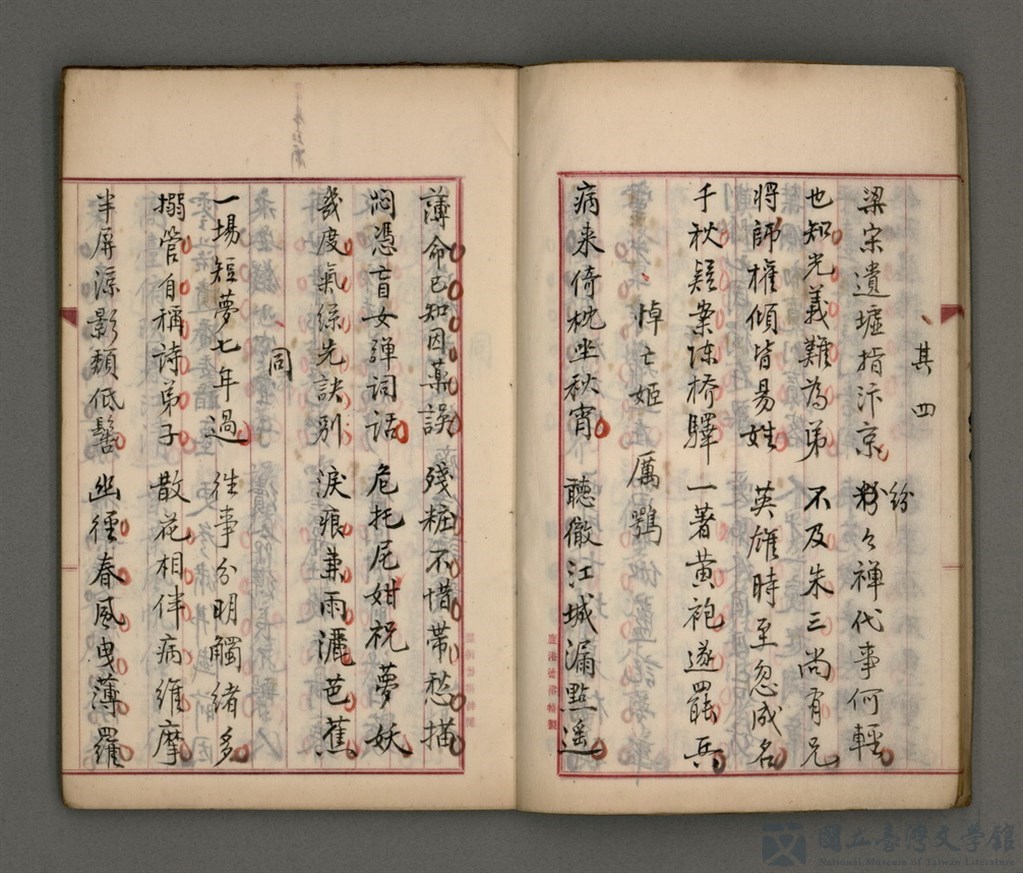 其四
梁宋遺墟指汴京 紛々禅代事何輕
也知光義難為弟 不及朱三尚有兄
將帥權傾皆易姓 英雄時至忽成名
千秋疑案陈桥驛 一著黃袍遂罷兵
悼亡姬 厲鶚
病来倚枕坐秋宵 聽徹江城漏點遥
薄命已知因藥誤 殘粧不惜帶愁描
悶憑盲女弾词話 危托尼姑祝夢妖
幾度氣絲先訣别 淚痕兼雨灑芭蕉
同
一場短夢七年過 往事分明觸緒多
搦管自稱詩弟子 散花相伴病維摩
半屏凉影頹低髻 幽徑春風曳薄羅
鹿港信昌特製
國立臺灣文學館
National Museum of Taiwan Literature